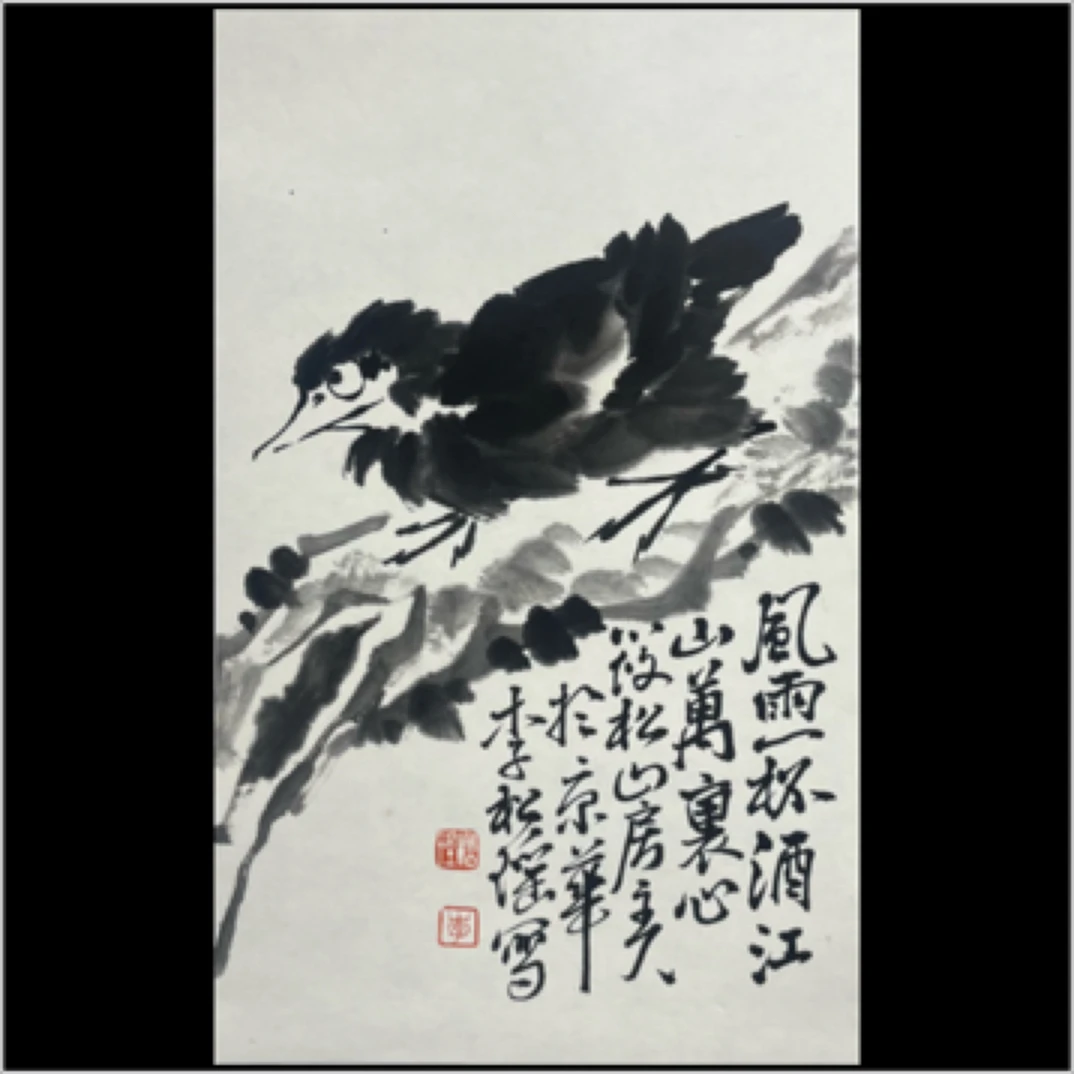 風雨一杯酒江
山萬裏心
筱松山房主人
於京華
李松瑶寫
李